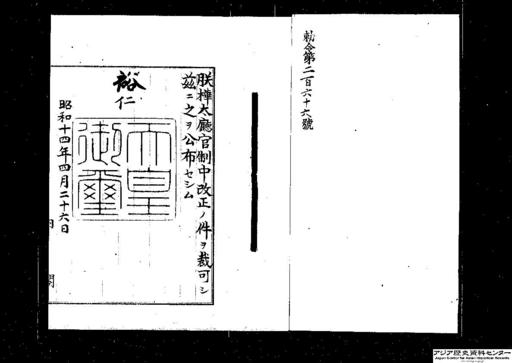 勅令第二百六十六號
朕樺太廳官制中改正ノ件ヲ裁可シ
玆ニ之ヲ公布セシム
裕仁
天皇御璽
昭和十四年四月二十六日
内閣
アジア歴史資料センター
Japan Center for Asian Historical Records